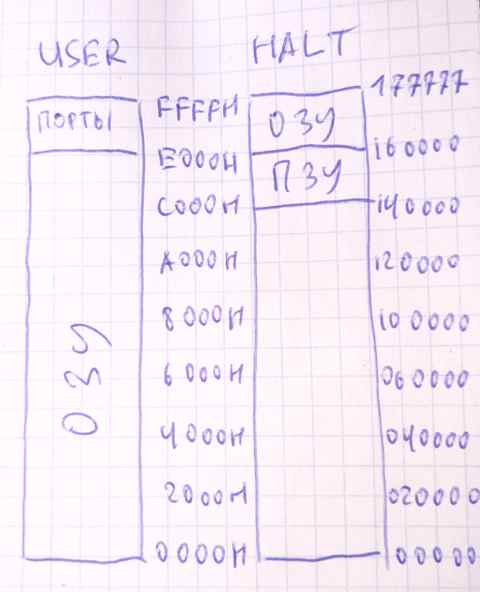 USER HALT
177777
ПОРТЫ FFFFH ОЗУ
E000H 160000
ПЗУ
C000H 140000
A000H 120000
8000H 100000
ОЗУ
6000H 060000
4000H 040000
2000H 020000
0000H 00000